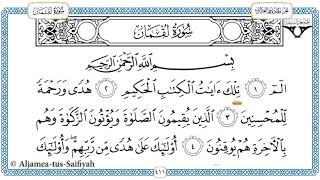 سُورَةُ لُقْمَانَ
سُورَةُ لُقْمَانَ
بِسْمِ اللَّهِ الرَّحْمَٰنِ الرَّحِيمِ
الٓمٓ ١ تِلْكَ ءَايَٰتُ الْكِتَٰبِ الْحَكِيمِ ٢ هُدًى وَرَحْمَةً
لِّلْمُحْسِنِينَ ٣ الَّذِينَ يُقِيمُونَ الصَّلَوٰةَ وَيُؤْتُونَ الزَّكَوٰةَ وَهُم
بِالْءَاخِرَةِ هُمْ يُوقِنُونَ ٤ أُولَٰٓئِكَ عَلَىٰ هُدًى مِّن رَّبِّهِمْ وَأُولَٰٓئِكَ
© Aljamea-tus-Saifiyah
٤١١